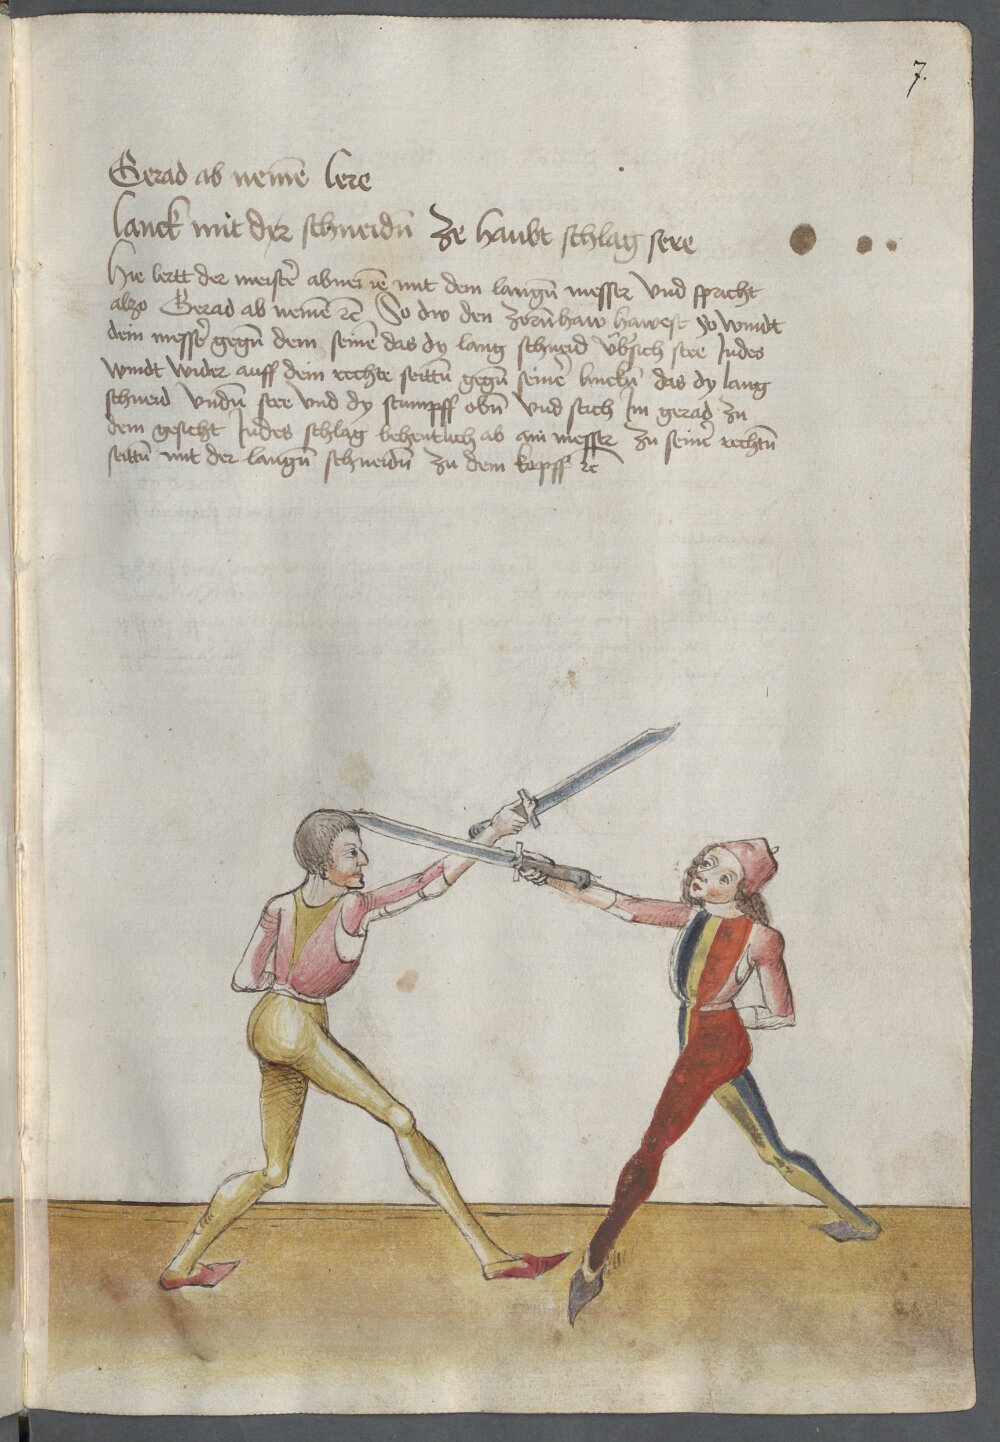 7.
Gerad ab nemē lere
lanck mit der schneidñ ze haubt schlag sere
Hie lertt der meistr̄ abnemē mit dem langñ messer Vnd spricht
also Gerad ab nemē rc̄ So dw den zorñhaw hawest So windt
dein messr̄ gegñ dem seinē das dy lang schneid vbersich stee Indes
windt wider auff dein rechte seittñ gegñ seinē das dy lang
schneid vndñ stee vnd dy stumpff obñ vnd stich Im gerad zu
dem gesicht Indes schlag behentlich ab am messer zu seinr̄ rechtñ
seittñ mit der langñ schneidñ zu dem kopff rc̄